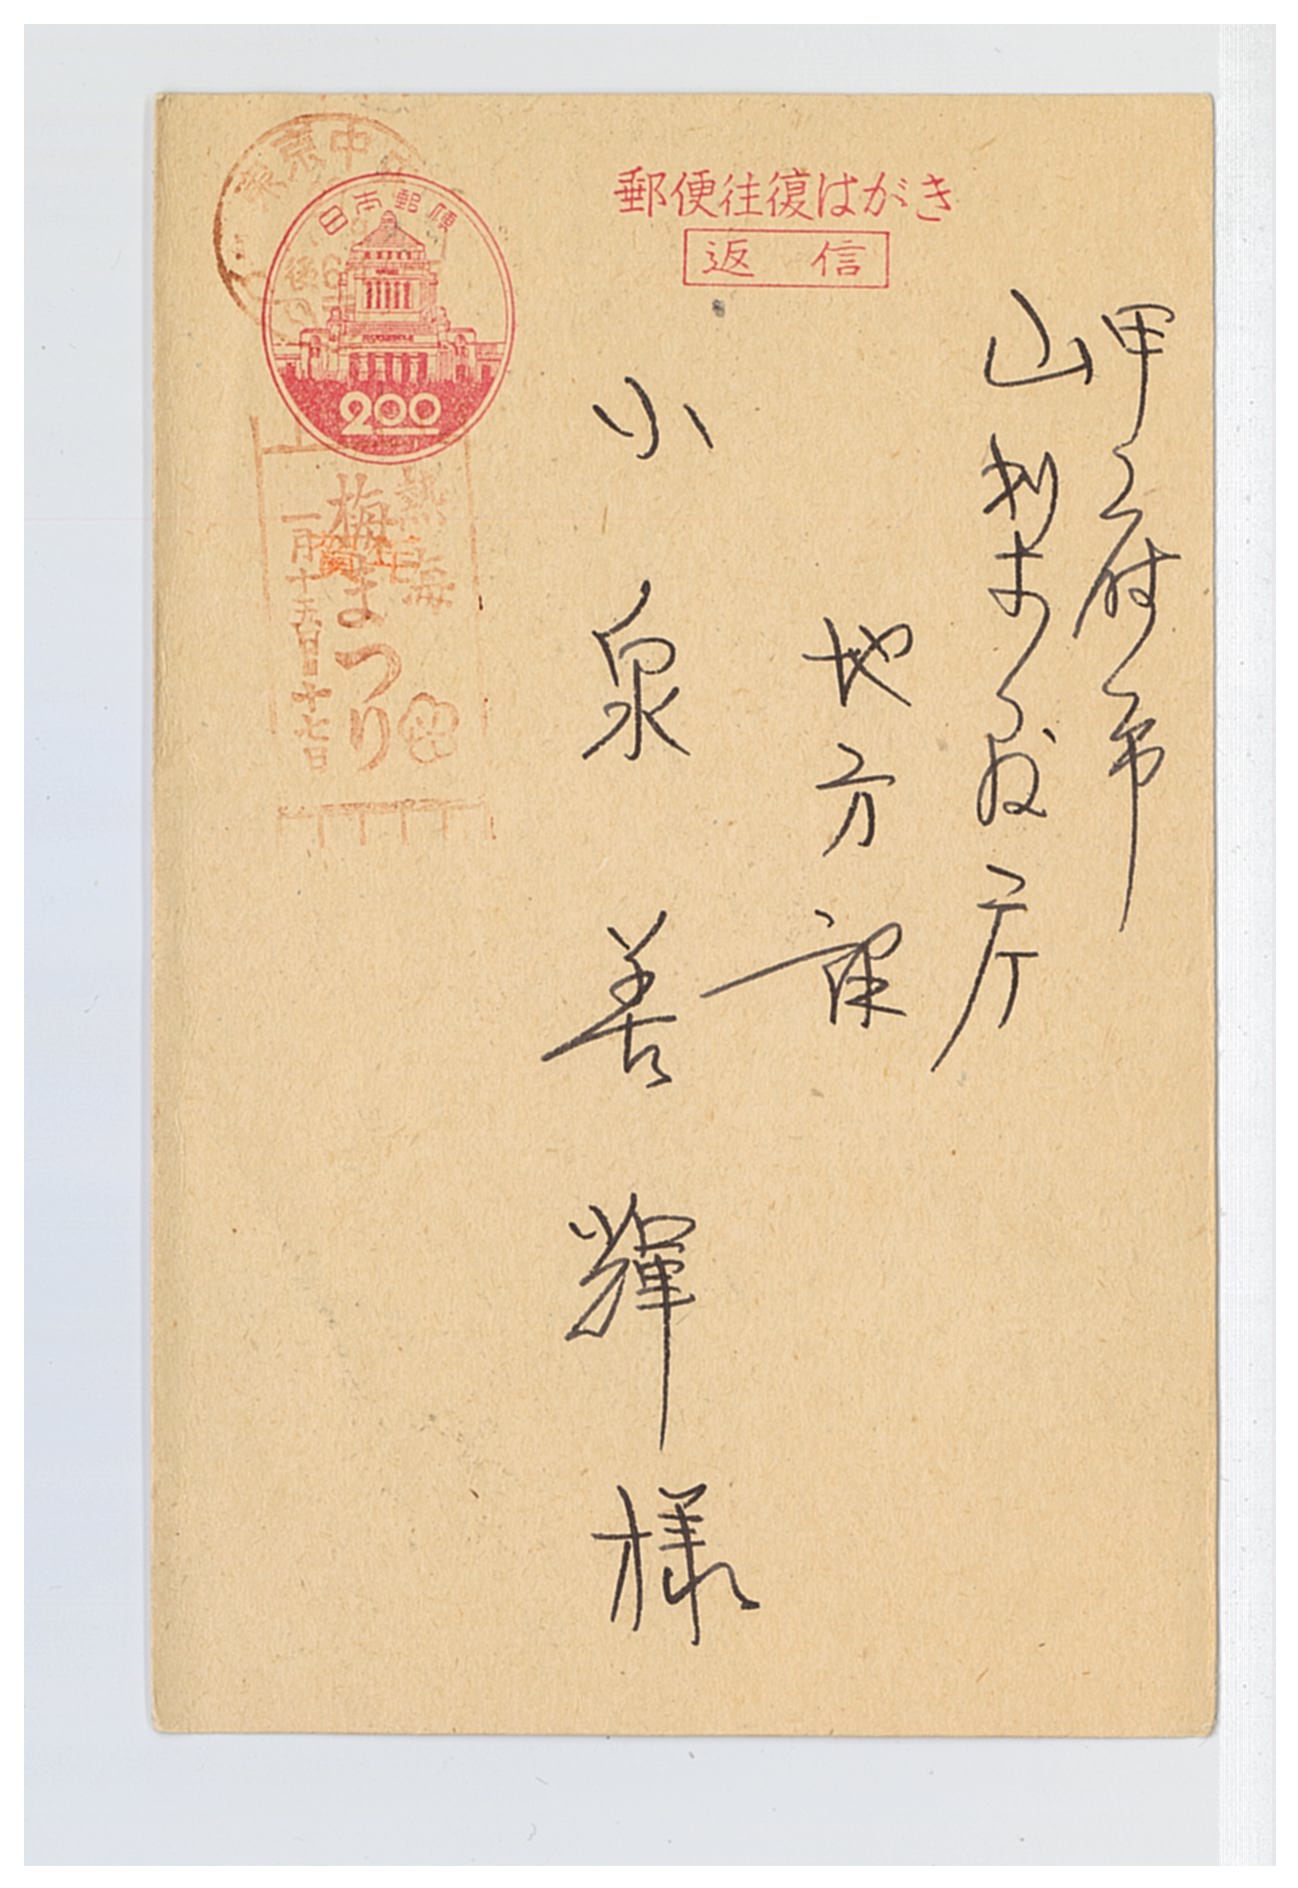 郵便往復はがき
返信
甲府市
山梨县庁
地方課
小泉善輝様
東京中
日本郵便
後6
200
熱海
梅まつり
一月十五日 十七日